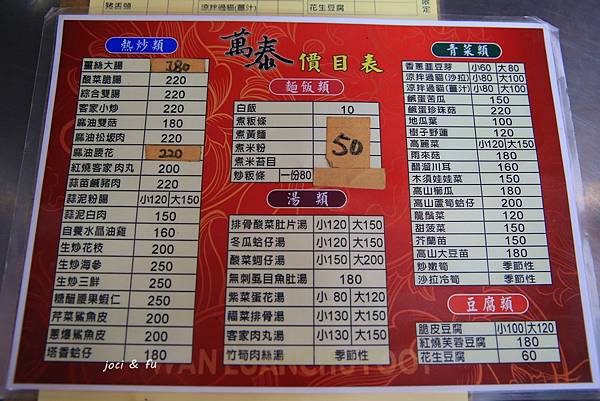 豬舌頭
涼拌過貓(薑汁)
花生豆腐
限定
萬泰 價目表
熱炒類
薑絲大腸 280
酸菜脆腸 220
綜合雙脆 220
客家小炒 220
麻油雙菇 180
麻油松坂肉 220
麻油腰花 220
紅燒客家肉丸 200
蒜苗鹹豬肉 220
蒜泥粉腸 小120 大150
蒜泥白肉 150
自養水晶油雞 160
生炒花枝 200
生炒海參 250
生炒三鮮 250
糖醋腰果蝦仁 250
芹菜鯊魚皮 200
蔥爆鯊魚皮 200
塔香蛤仔 180
麵飯類
白飯 10
煮粄條
煮黃麵
煮米粉
煮米苔目
50
炒粄條 一份80
湯類
排骨酸菜肚片湯 小120 大150
冬瓜蛤仔湯 小120 大150
酸菜蚵仔湯 小150 大200
無刺虱目魚肚湯 180
紫菜蛋花湯 小 80 大120
福菜排骨湯 小130 大150
客家肉丸湯 小130 大150
竹筍肉絲湯 季節性
青菜類
香蔥韮豆芽 小60 大80
涼拌過貓(沙拉) 小80 大100
涼拌過貓(薑汁) 小80 大100
鹹蛋苦瓜 150
鹹蛋珍珠菇 220
地瓜葉 100
樹子野蓮 120
高麗菜 小120 大150
雨來菇 180
醋溜川耳 160
木須娃娃菜 150
高山櫛瓜 180
高山蘆筍蛤仔 200
龍鬚菜 120
甜菠菜 150
芥蘭苗 150
高山大豆苗 180
炒嫩筍 季節性
沙拉冷筍 季節性
豆腐類
脆皮豆腐 小100 大120
紅燒芙蓉豆腐 180
花生豆腐 60
joci & fu